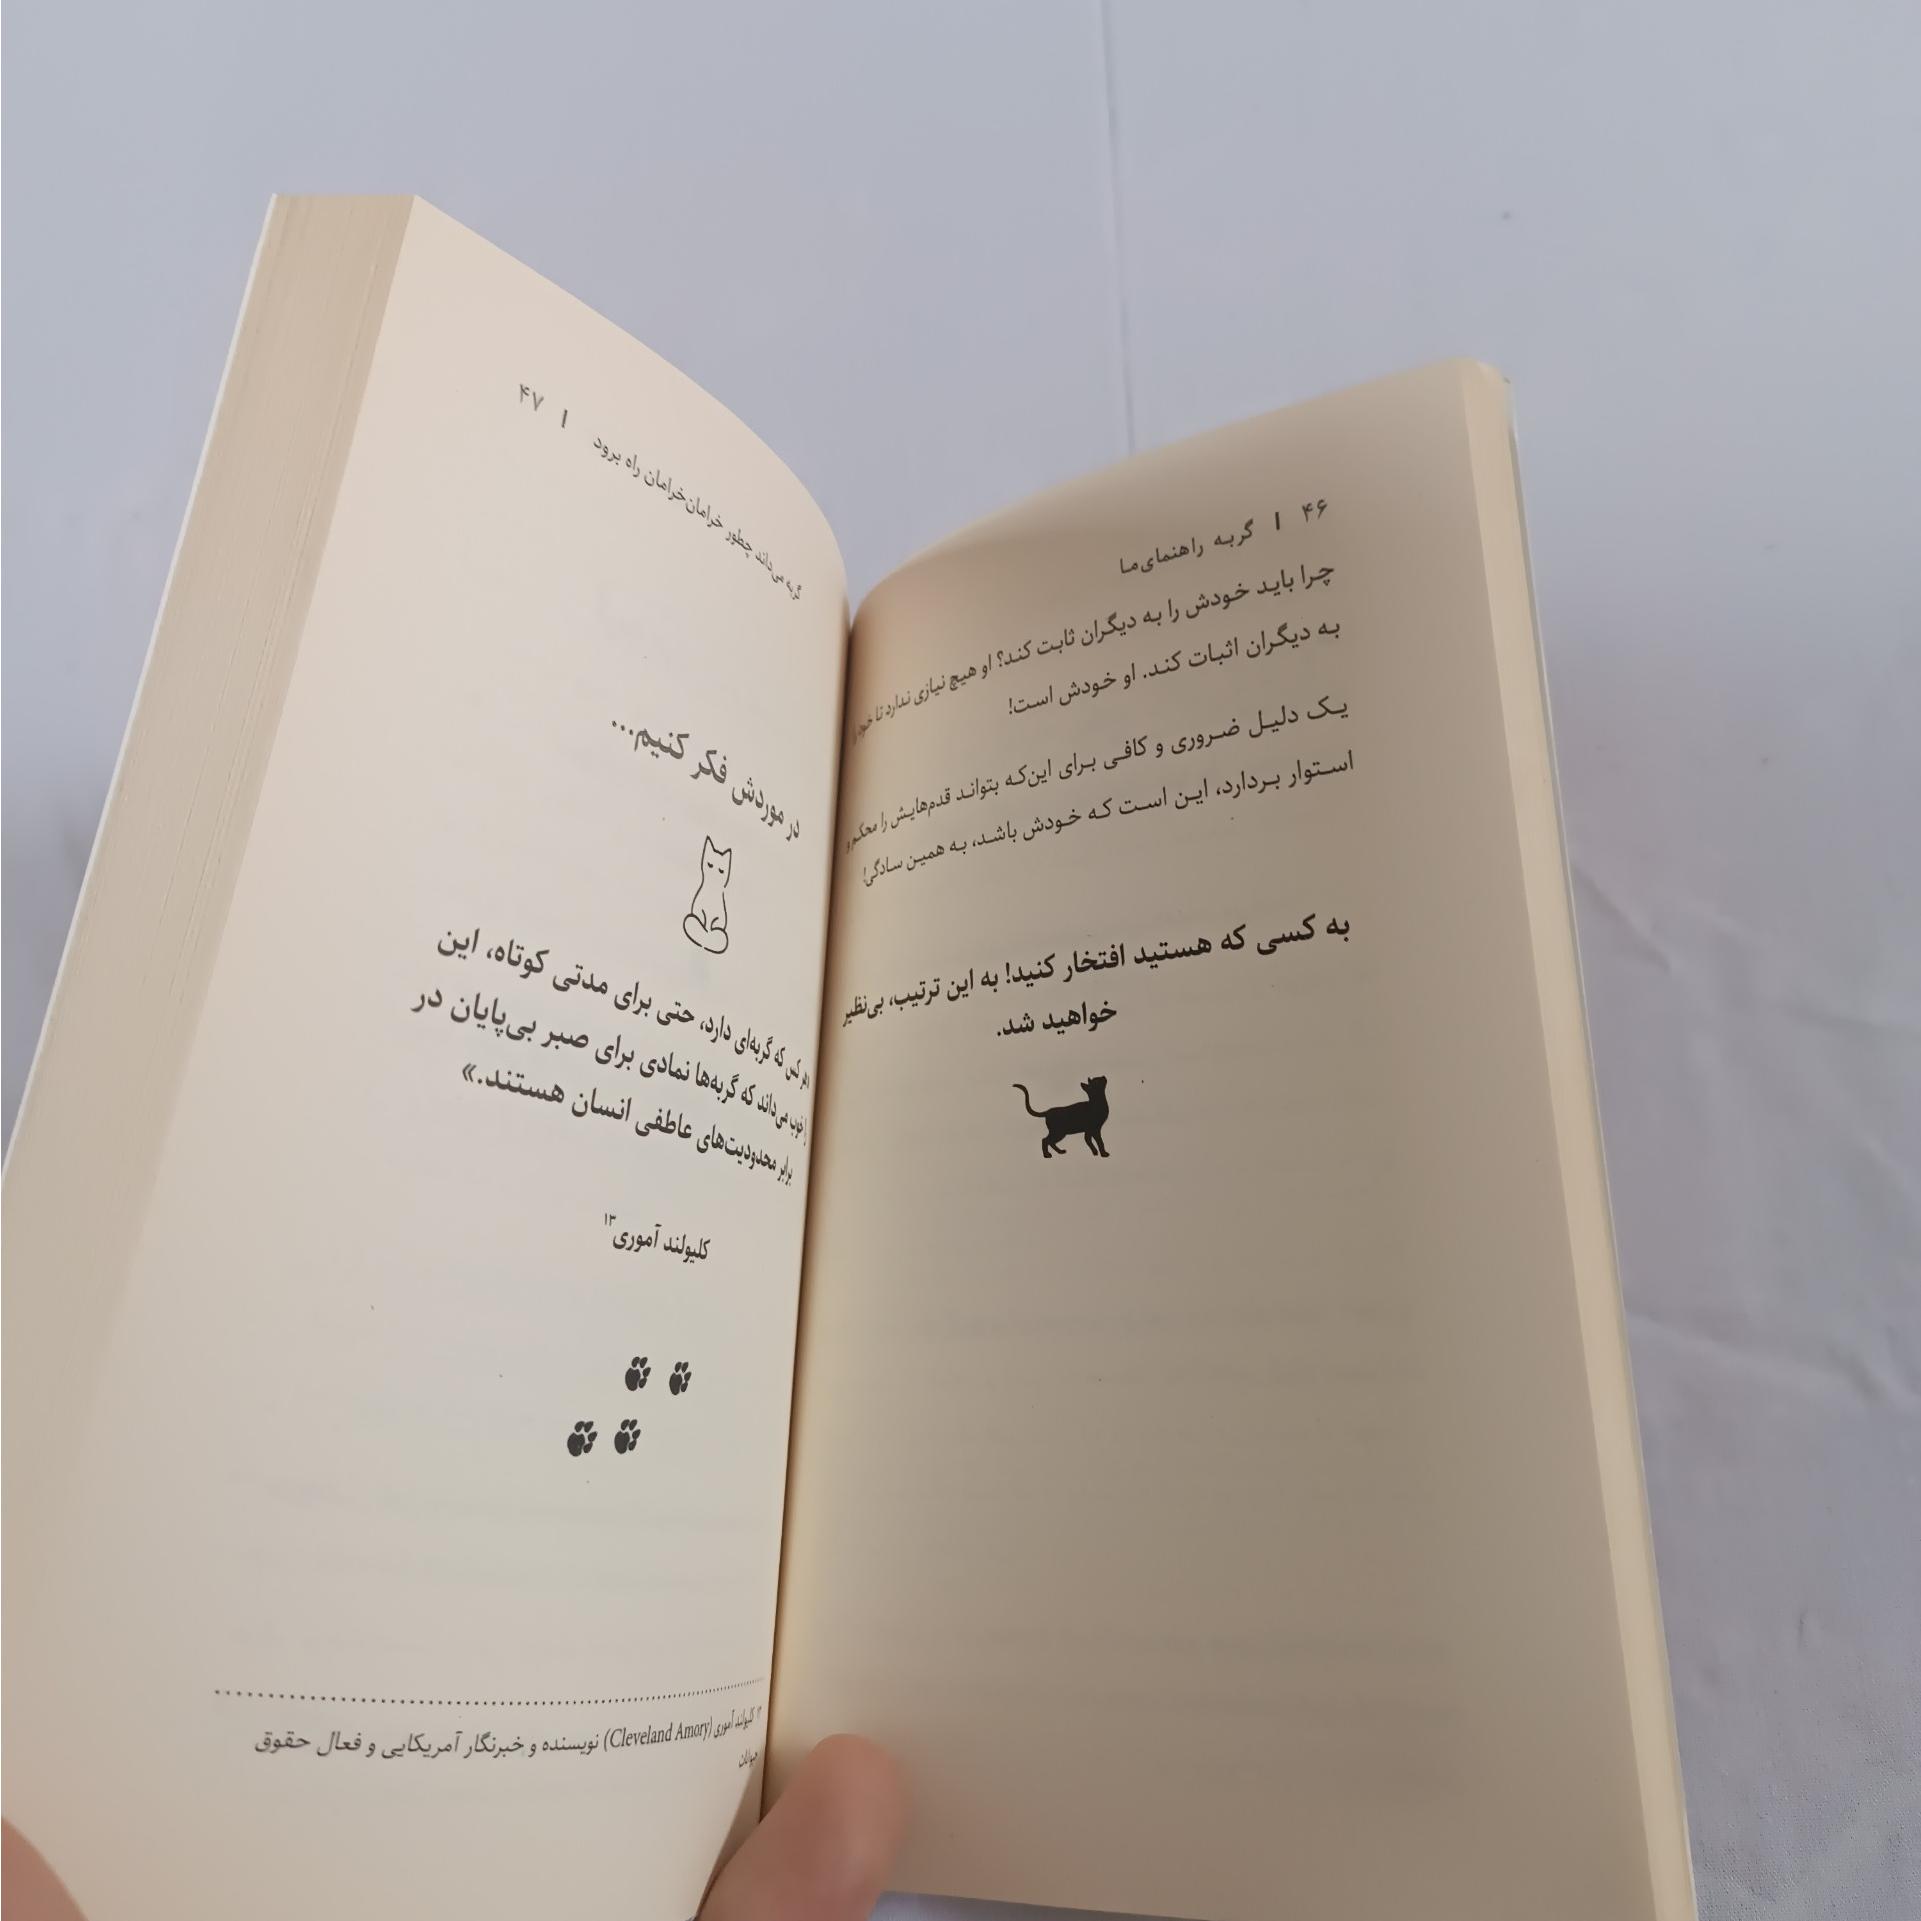 ۴۶ | گربه راهنمای‌ما
چرا باید خودش را به دیگران ثابت کند؟ او هیچ نیازی ندارد تا خود
به دیگران اثبات کند. او خودش است!
یک دلیل ضروری و کافی برای این‌که بتواند قدم‌هایش را محکم و
استوار بردارد، این است که خودش باشد، به همین سادگی!
به کسی که هستید افتخار کنید! به این ترتیب، بی‌نظیر
خواهید شد.
گربه می‌داند چطور خرامان‌خرامان راه برود | ۴۷
در موردش فکر کنیم...
هر کس که گربه‌ای دارد، حتی برای مدتی کوتاه، این
را خوب می‌داند که گربه‌ها نمادی برای صبر بی‌پایان در
برابر محدودیت‌های عاطفی انسان هستند.»
کلیولند آموری۱۳
کلیولند آموری (Cleveland Amory) نویسنده و خبرنگار آمریکایی و فعال حقوق
حیوانات